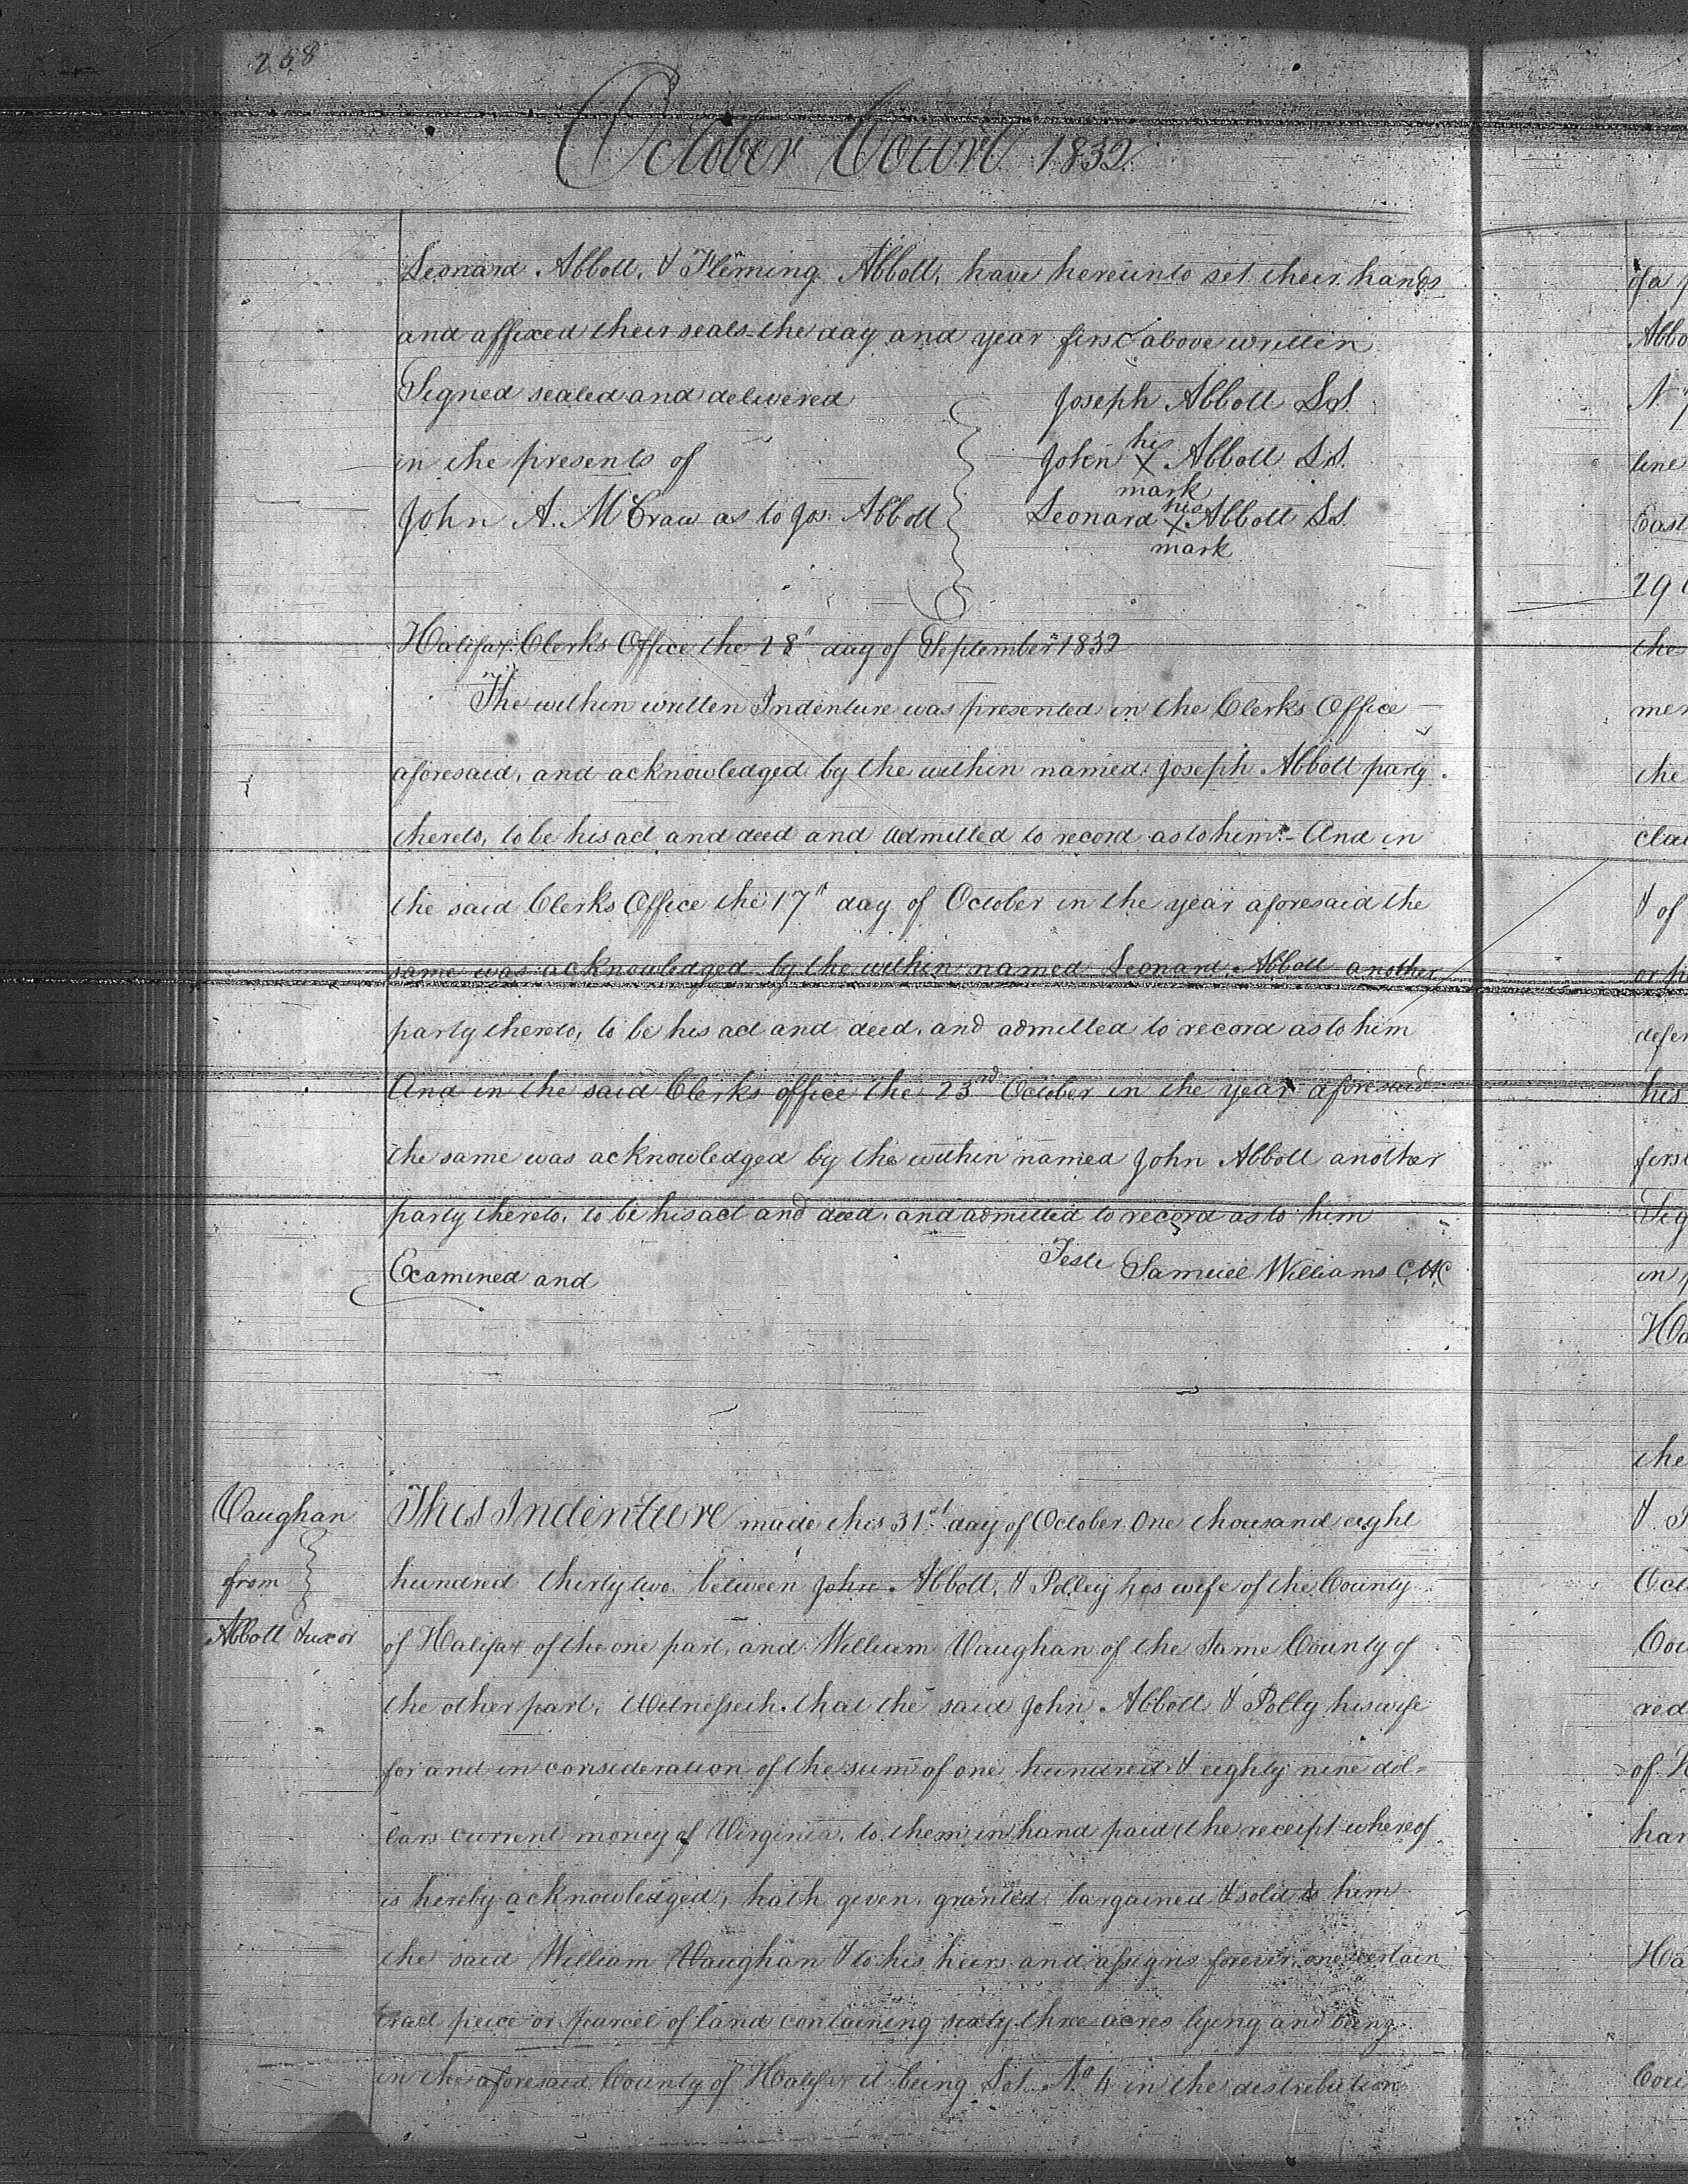 268
October Court 1832
Leonard Abbott, & Fleming Abbott, have hereunto set their hands
and affixed their seals the day and year first above written
Signed sealed and delivered
in the presents of
John A. McCraw as to Jos: Abbott
Joseph Abbott L.S.
his
John X Abbott L.S.
mark
his
Leonard X Abbott L.S.
mark
Halifax Clerks Office the 28" day of September 1832
The within written Indenture was presented in the Clerks Office
aforesaid, and acknowledged by the within named Joseph Abbott party
thereto, to be his act and deed and admitted to record as to him. - And in
the said Clerks Office the 17" day of October in the year aforesaid the
same was acknowledged by the within named Leonard Abbott another
party thereto, to be his act and deed, and admitted to record as to him
And in the said Clerks office the 23rd October in the year aforesaid
the same was acknowledged by the within named John Abbott another
party thereto, to be his act and deed, and admitted to record as to him
Teste Samuel Williams C.H.C
Examined and
Vaughan
from
Abbott & uxor
This Indenture made this 31st day of October One thousand eight
hundred thirty two between John Abbott, & Polley his wife of the County
of Halifax of the one part, and William Vaughan of the same County of
the other part, Witnesseth that the said John Abbott & Polly his wife
for and in consideration of the sum of one hundred & eighty nine dol=
lars current money of Virginia, to them in hand paid the receipt whereof
is hereby acknowledged, hath given, granted, bargained & sold to him
the said William Vaughan & to his heirs and assigns forever, one certain
tract peice or parcel of land containing sixty three acres lying and being
in the aforesaid County of Halifax it being Lot No 4 in the distribution